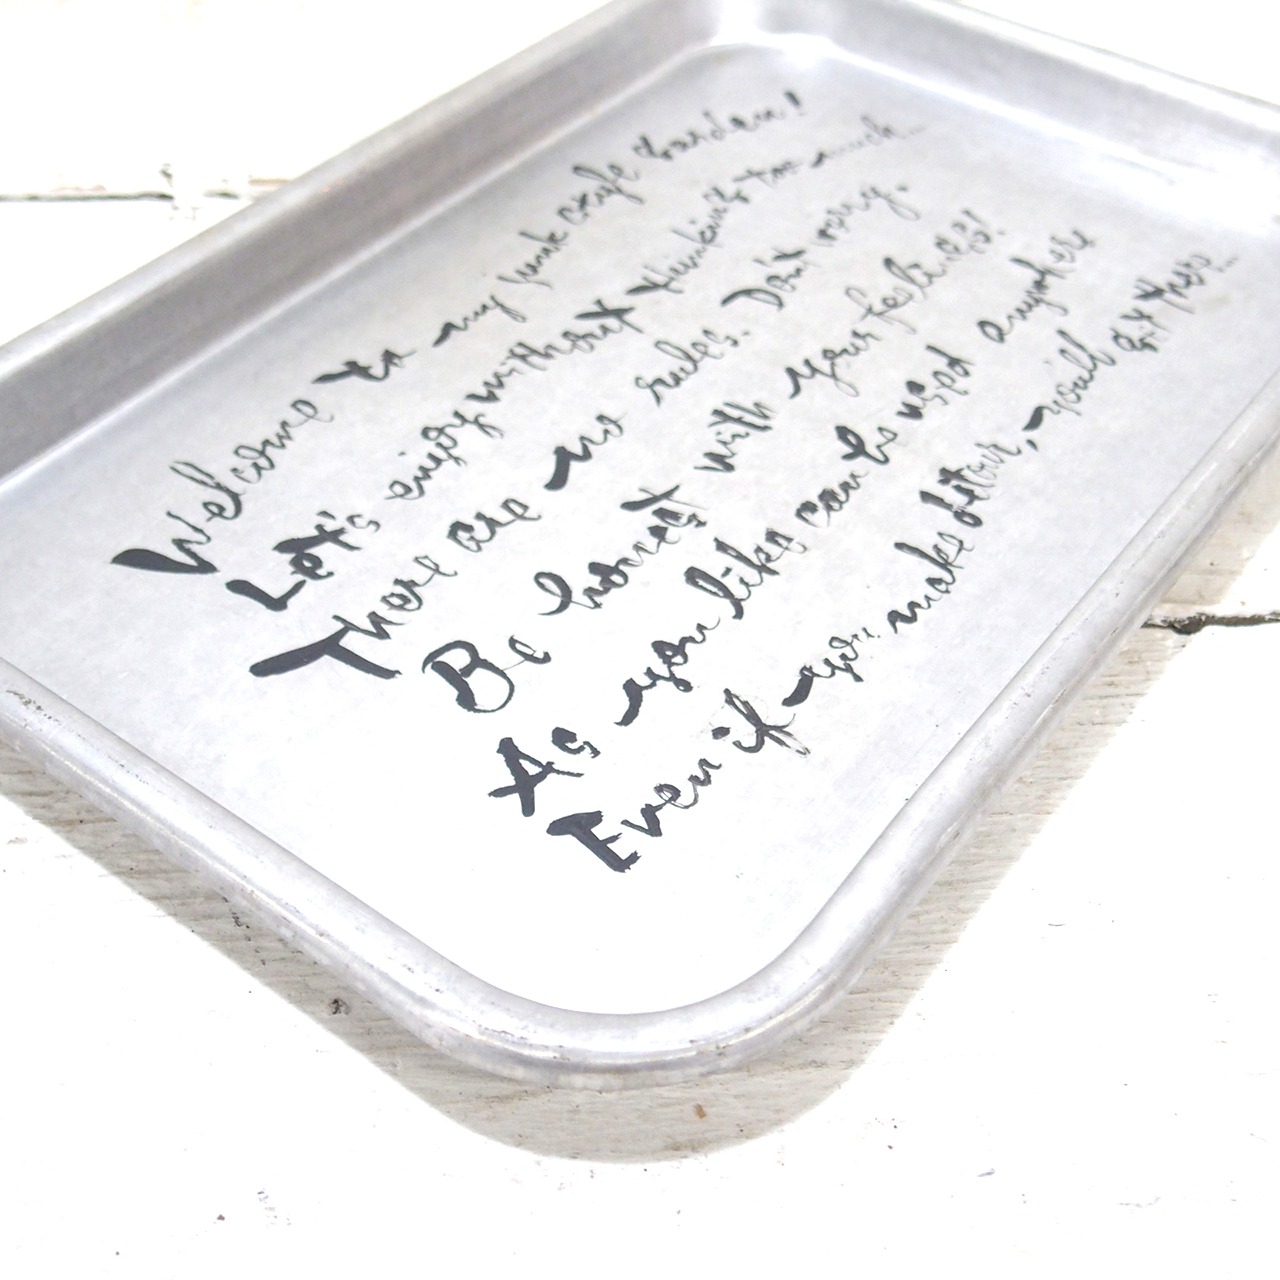 Welcome to my junk style Garden!
Let's enjoy without thinking too much...
There are no rules. Don't worry.
Be honest with your feelings!
As you like can be used anywhere
Even if you make detour, will get there...